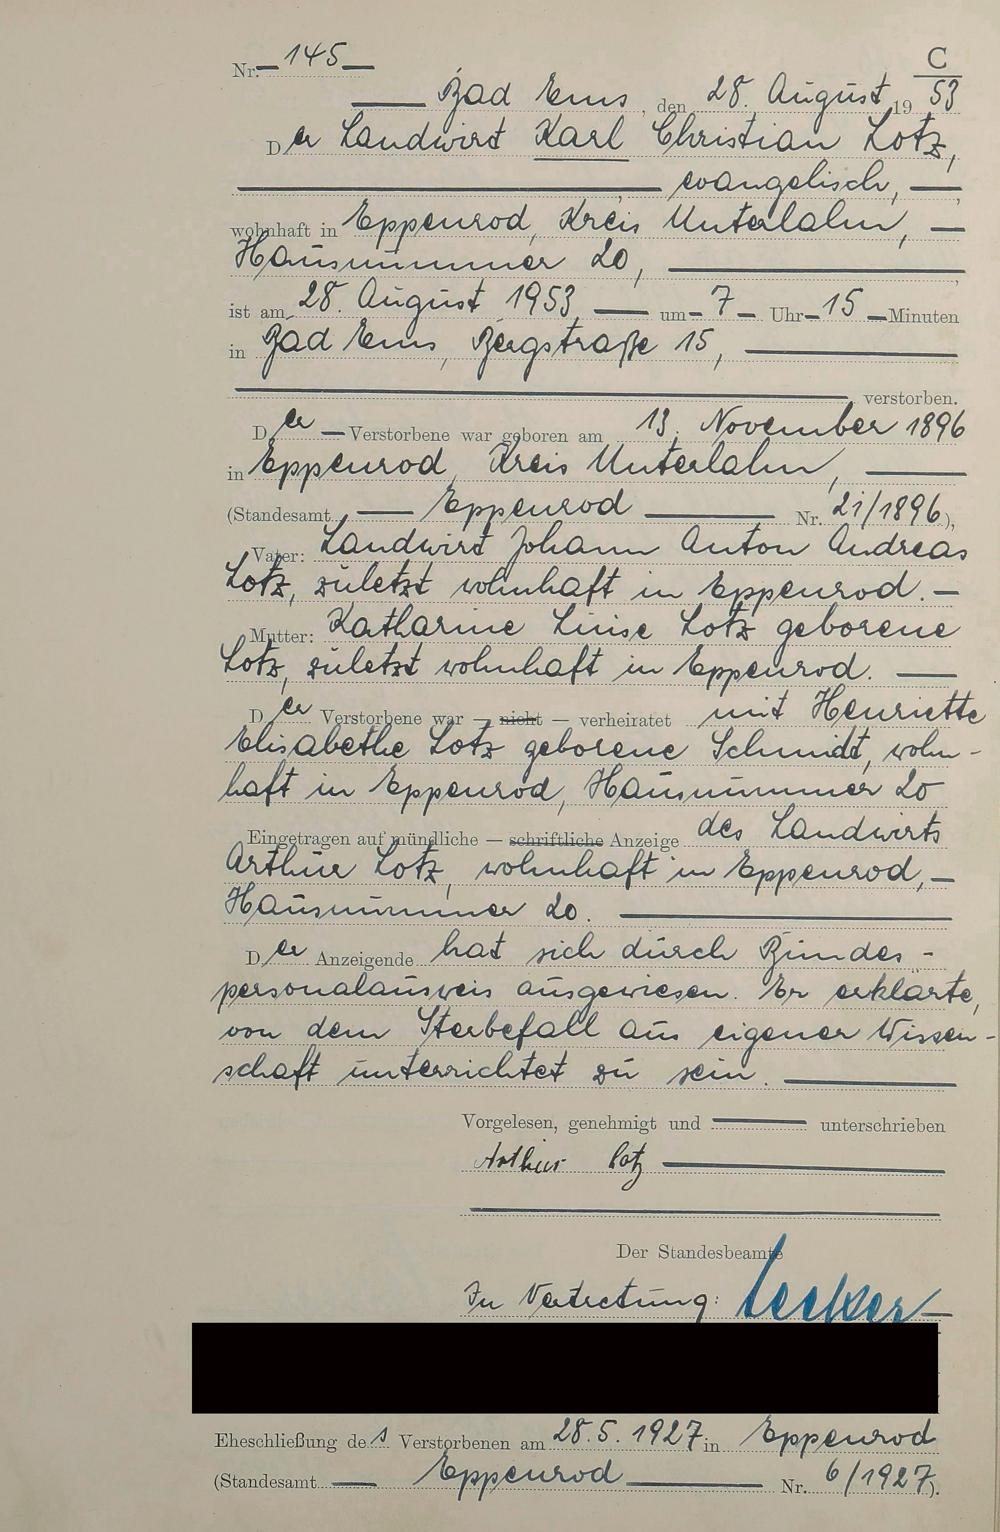 Nr. 145
C
Bad Ems, den 28. August 19 53
Der Landwirt Karl Christian Lotz,
evangelisch,
wohnhaft in Eppenrod, Kreis Unterlahn,
Hausnummer 20,
ist am 28. August 1953 um 7 Uhr 15 Minuten
in Bad Ems, Bergstraße 15,
verstorben.
Der Verstorbene war geboren am 13. November 1896
in Eppenrod, Kreis Unterlahn,
(Standesamt Eppenrod Nr. 21/1896),
Vater: Landwirt Johann Anton Andreas
Lotz, zuletzt wohnhaft in Eppenrod.
Mutter: Katharine Luise Lotz geborene
Lotz, zuletzt wohnhaft in Eppenrod.
Der Verstorbene war — nicht — verheiratet mit Henriette
Elisabethe Lotz geborene Schmidt, wohn-
haft in Eppenrod, Hausnummer 20
Eingetragen auf mündliche — schriftliche Anzeige des Landwirts
Arthur Lotz, wohnhaft in Eppenrod,
Hausnummer 20.
Der Anzeigende hat sich durch Bundes-
personalausweis ausgewiesen. Er erklärte,
von dem Sterbefall aus eigener Wissen-
schaft unterrichtet zu sein.
Vorgelesen, genehmigt und unterschrieben
Arthur Lotz
Der Standesbeamte
In Vertretung:
Eheschließung des Verstorbenen am 28.5.1927 in Eppenrod
(Standesamt Eppenrod Nr. 6/1927).